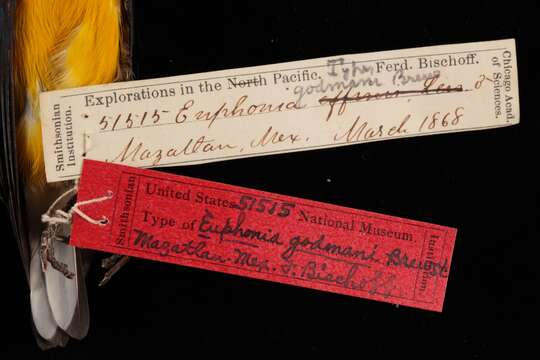 Smithsonian Institution.
Explorations in the North Pacific. Type Ferd. Bischoff.
godmani Brews
51515 Euphonia affinis Less ♂
Mazatlan, Mex. March 1868
Chicago Acad. of Sciences.
Smithsonian Institution.
United States 51515 National Museum.
Type of Euphonia godmani Brewst
Mazatlan. Mex. F. Bischoff